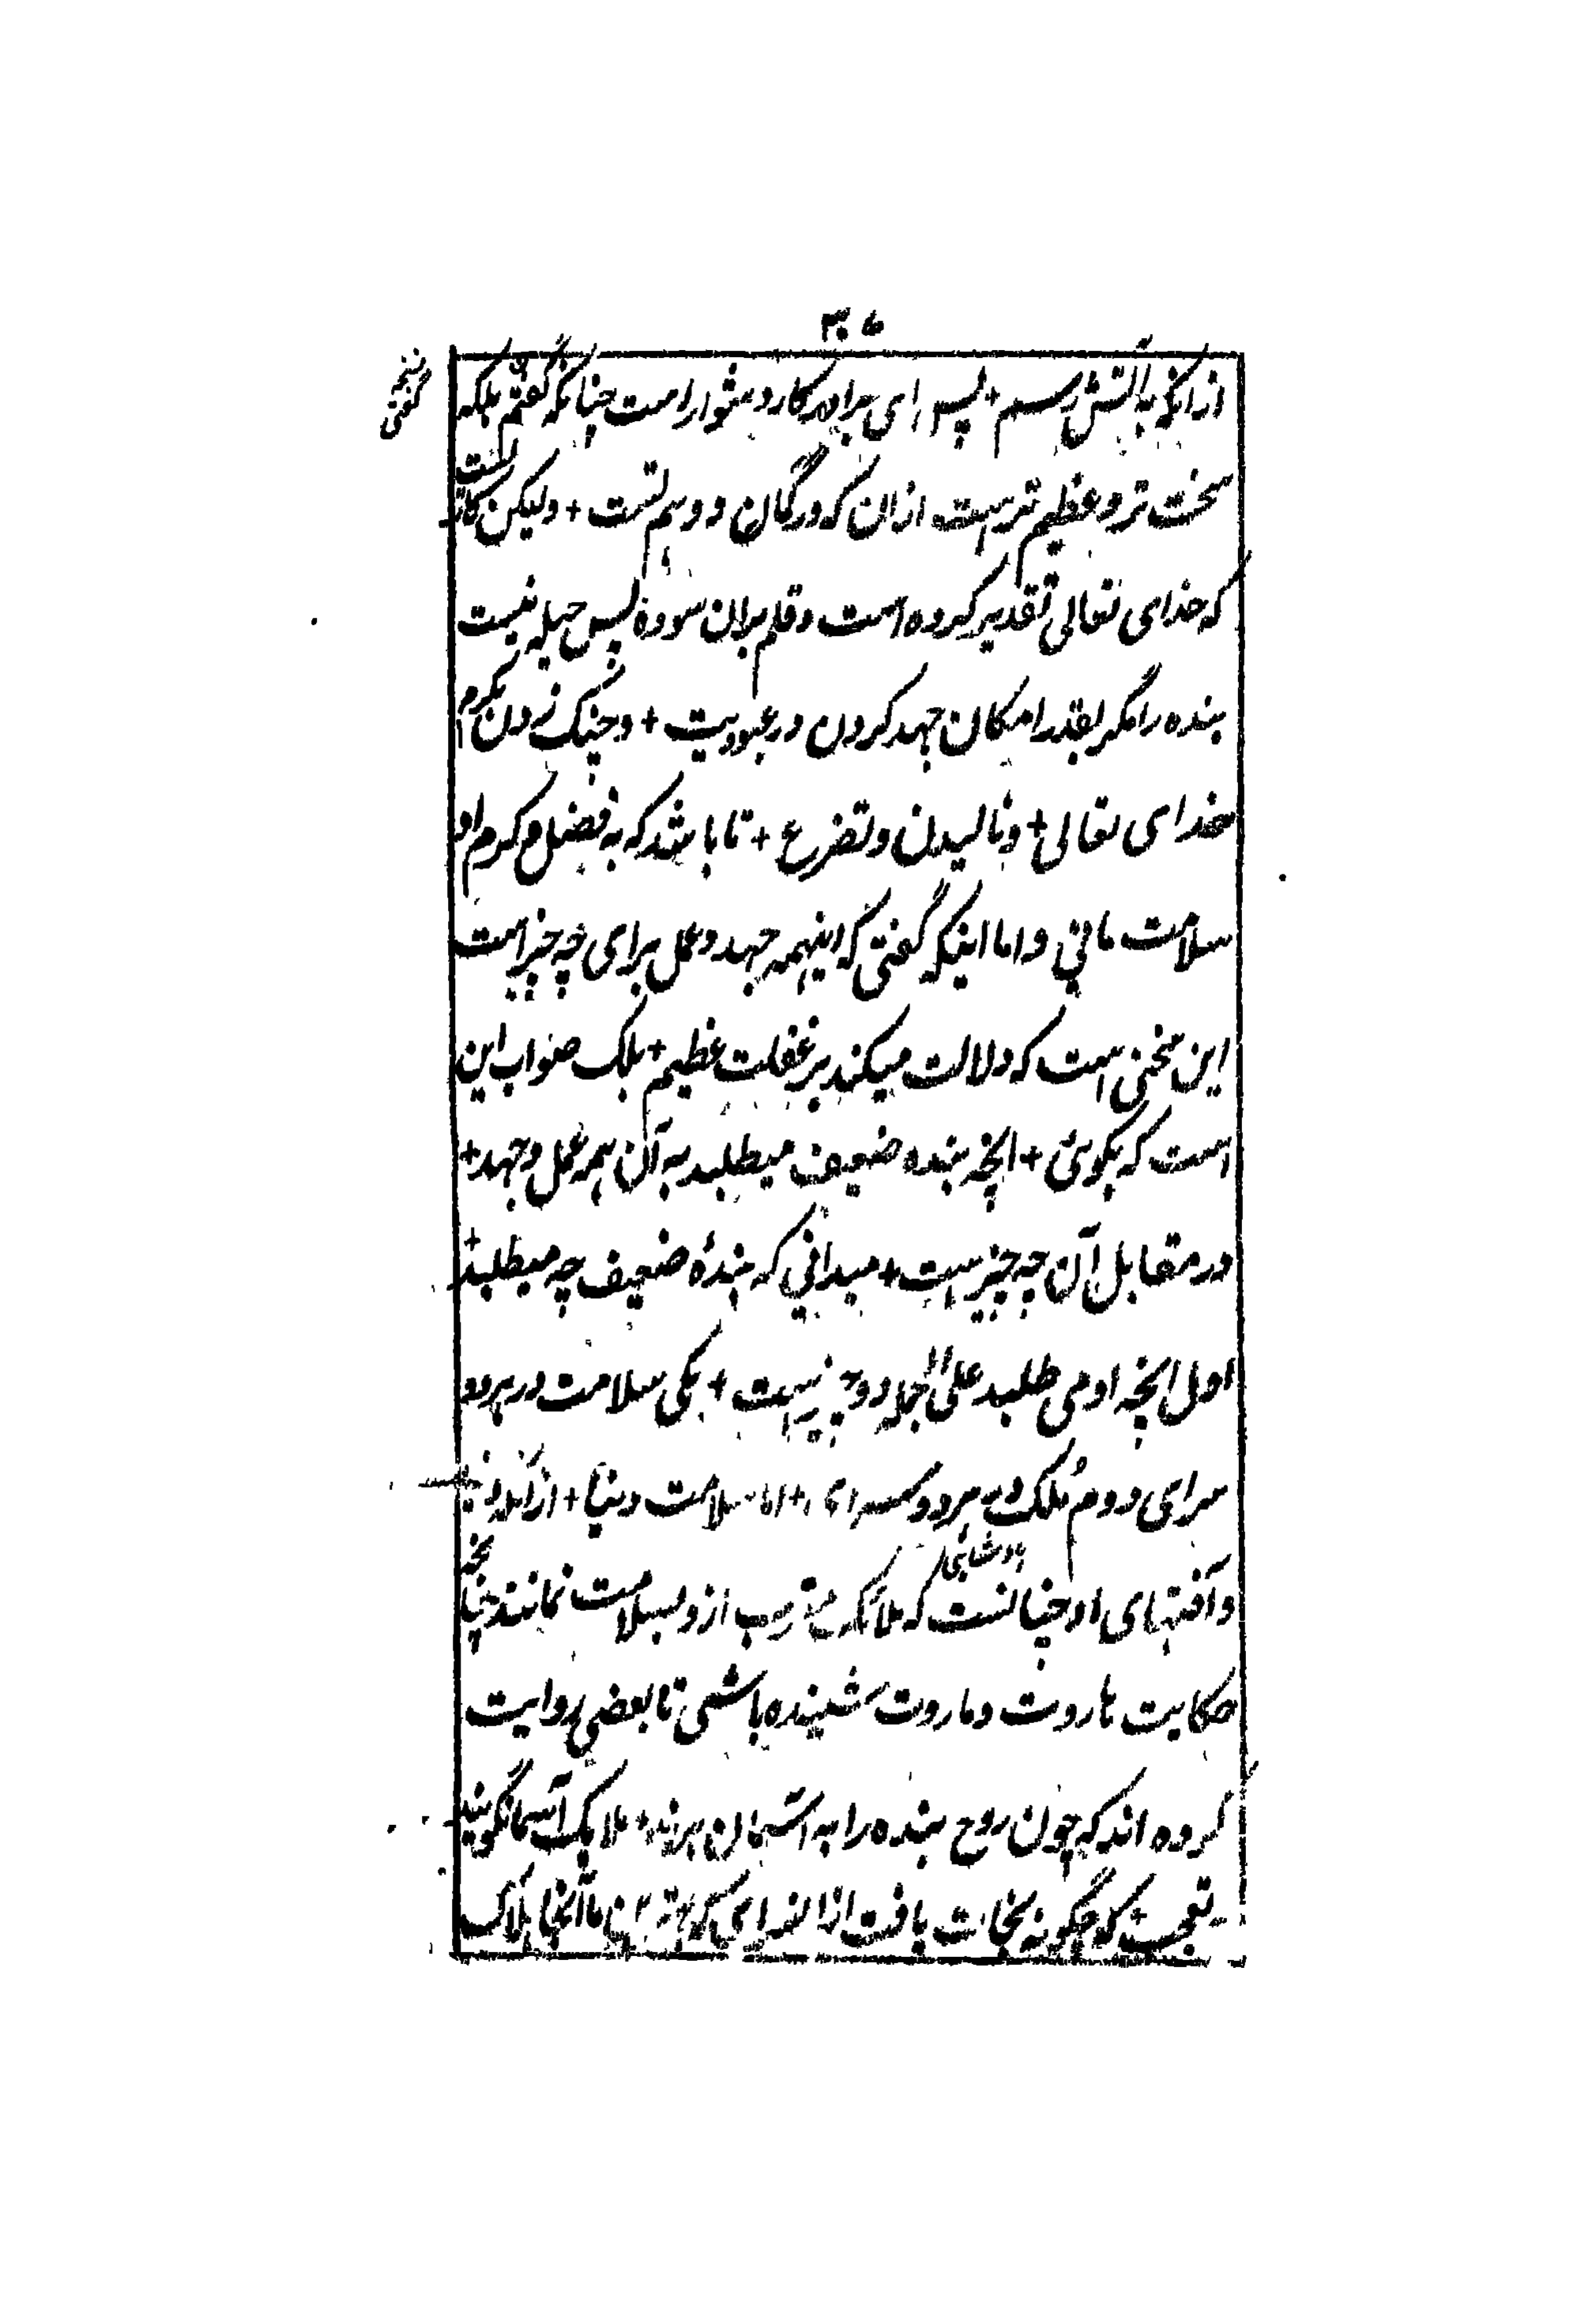 ۳۰۷
ازانکه به آتش رسم + پس ای برادر کار دشوار است چنانکه گفتم بلکه
نسخه گفتی
سخت تر و عظیم ترست ازان که در گمان و وهم تست + ولیکن کاریست
که خدای تعالی تقدیر کرده است و قلم بران سوده پس حیله نیست
بنده را مگر بقدر امکان جهد کردن در عبودیت + و چنگ زدن بکرم
خدای تعالی + و نالیدن و تضرع + تا باشد که به فضل و کرم او
سلامت مانی و اما اینکه گفتی که اینهمه جهد و عمل برای چه چیز است
این سخنی است که دلالت میکند بر غفلت عظیم + بلک صواب این
است که بگوئی + انچه بنده ضعیف میطلبد به آن همه عمل و جهد +
در مقابل آن چه چیزست + میدانی که بندهٔ ضعیف چه میطلبد +
اول انچه او می طلبد علی الجمله دو چیزست + یکی سلامت در هر دو
سرای دوم مُلک در هر دو سرای + اما سلامت دنیا +
پادشاهی
و آفتهای او چنانست که ملائکه مقرب ازو بسلامت نمانند چنانچه
حکایت هاروت و ماروت شنیده باشی تا بعضی روایت
کرده اند که چون روح بنده را به آسمان برند + ملایک آسمان گویند
تعجب که چگونه نجات یافت ازان سرای که بهترین ما آنجا هلاک